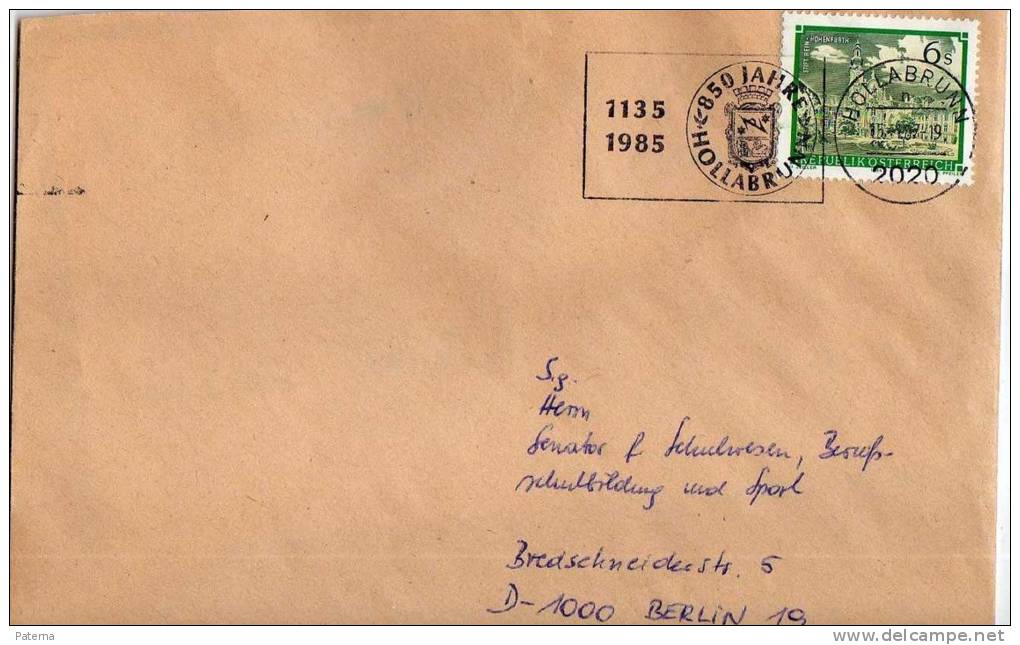 1135
1985
850 JAHRE
HOLLABRUNN
6 S
STIFT REIN-HOHENFURTH
REPUBLIK ÖSTERREICH
HOLLABRUNN
n
2020
S.g.
Herrn
Senator f. Schulwesen, Berufs-
schulbildung und Sport
Bredschneiderstr. 5
D-1000 BERLIN 19
Paterna
www.delcampe.net